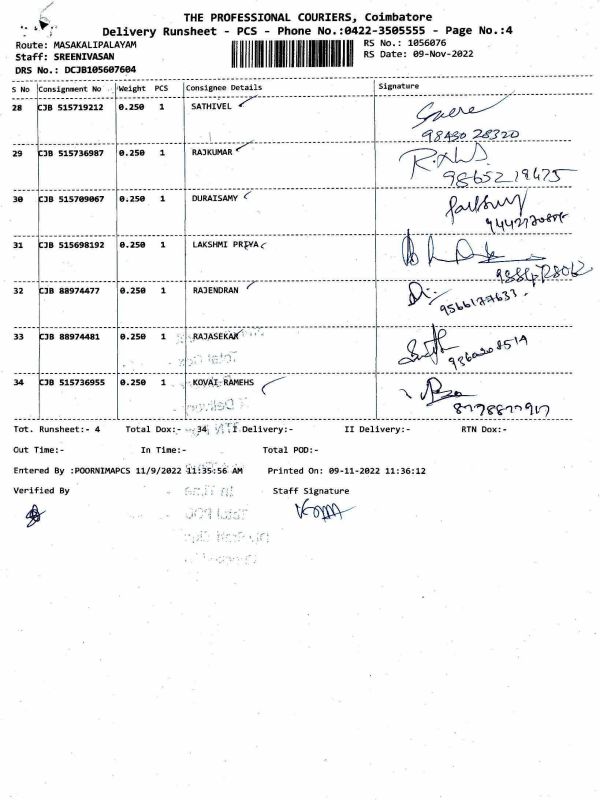 THE PROFESSIONAL COURIERS, Coimbatore
Delivery Runsheet - PCS - Phone No.:0422-3505555 - Page No.:4
Route: MASAKALIPALAYAM
RS No.: 1056076
Staff: SREENIVASAN
RS Date: 09-Nov-2022
DRS No.: DCJB105607604
S No Consignment No Weight PCS Consignee Details Signature
28 CJB 515719212 0.250 1 SATHIVEL
98430 28320
29 CJB 515736987 0.250 1 RAJKUMAR
98652 19475
30 CJB 515709067 0.250 1 DURAISAMY
31 CJB 515698192 0.250 1 LAKSHMI PRIYA
32 CJB 88974477 0.250 1 RAJENDRAN
9566177633
33 CJB 88974481 0.250 1 RAJASEKAR
34 CJB 515736955 0.250 1 KOVAI RAMEHS
8778877917
Tot. Runsheet:- 4 Total Dox:- 34 I Delivery:- II Delivery:- RTN Dox:-
Out Time:- In Time:- Total POD:-
Entered By :POORNIMAPCS 11/9/2022 11:35:56 AM Printed On: 09-11-2022 11:36:12
Verified By Staff Signature